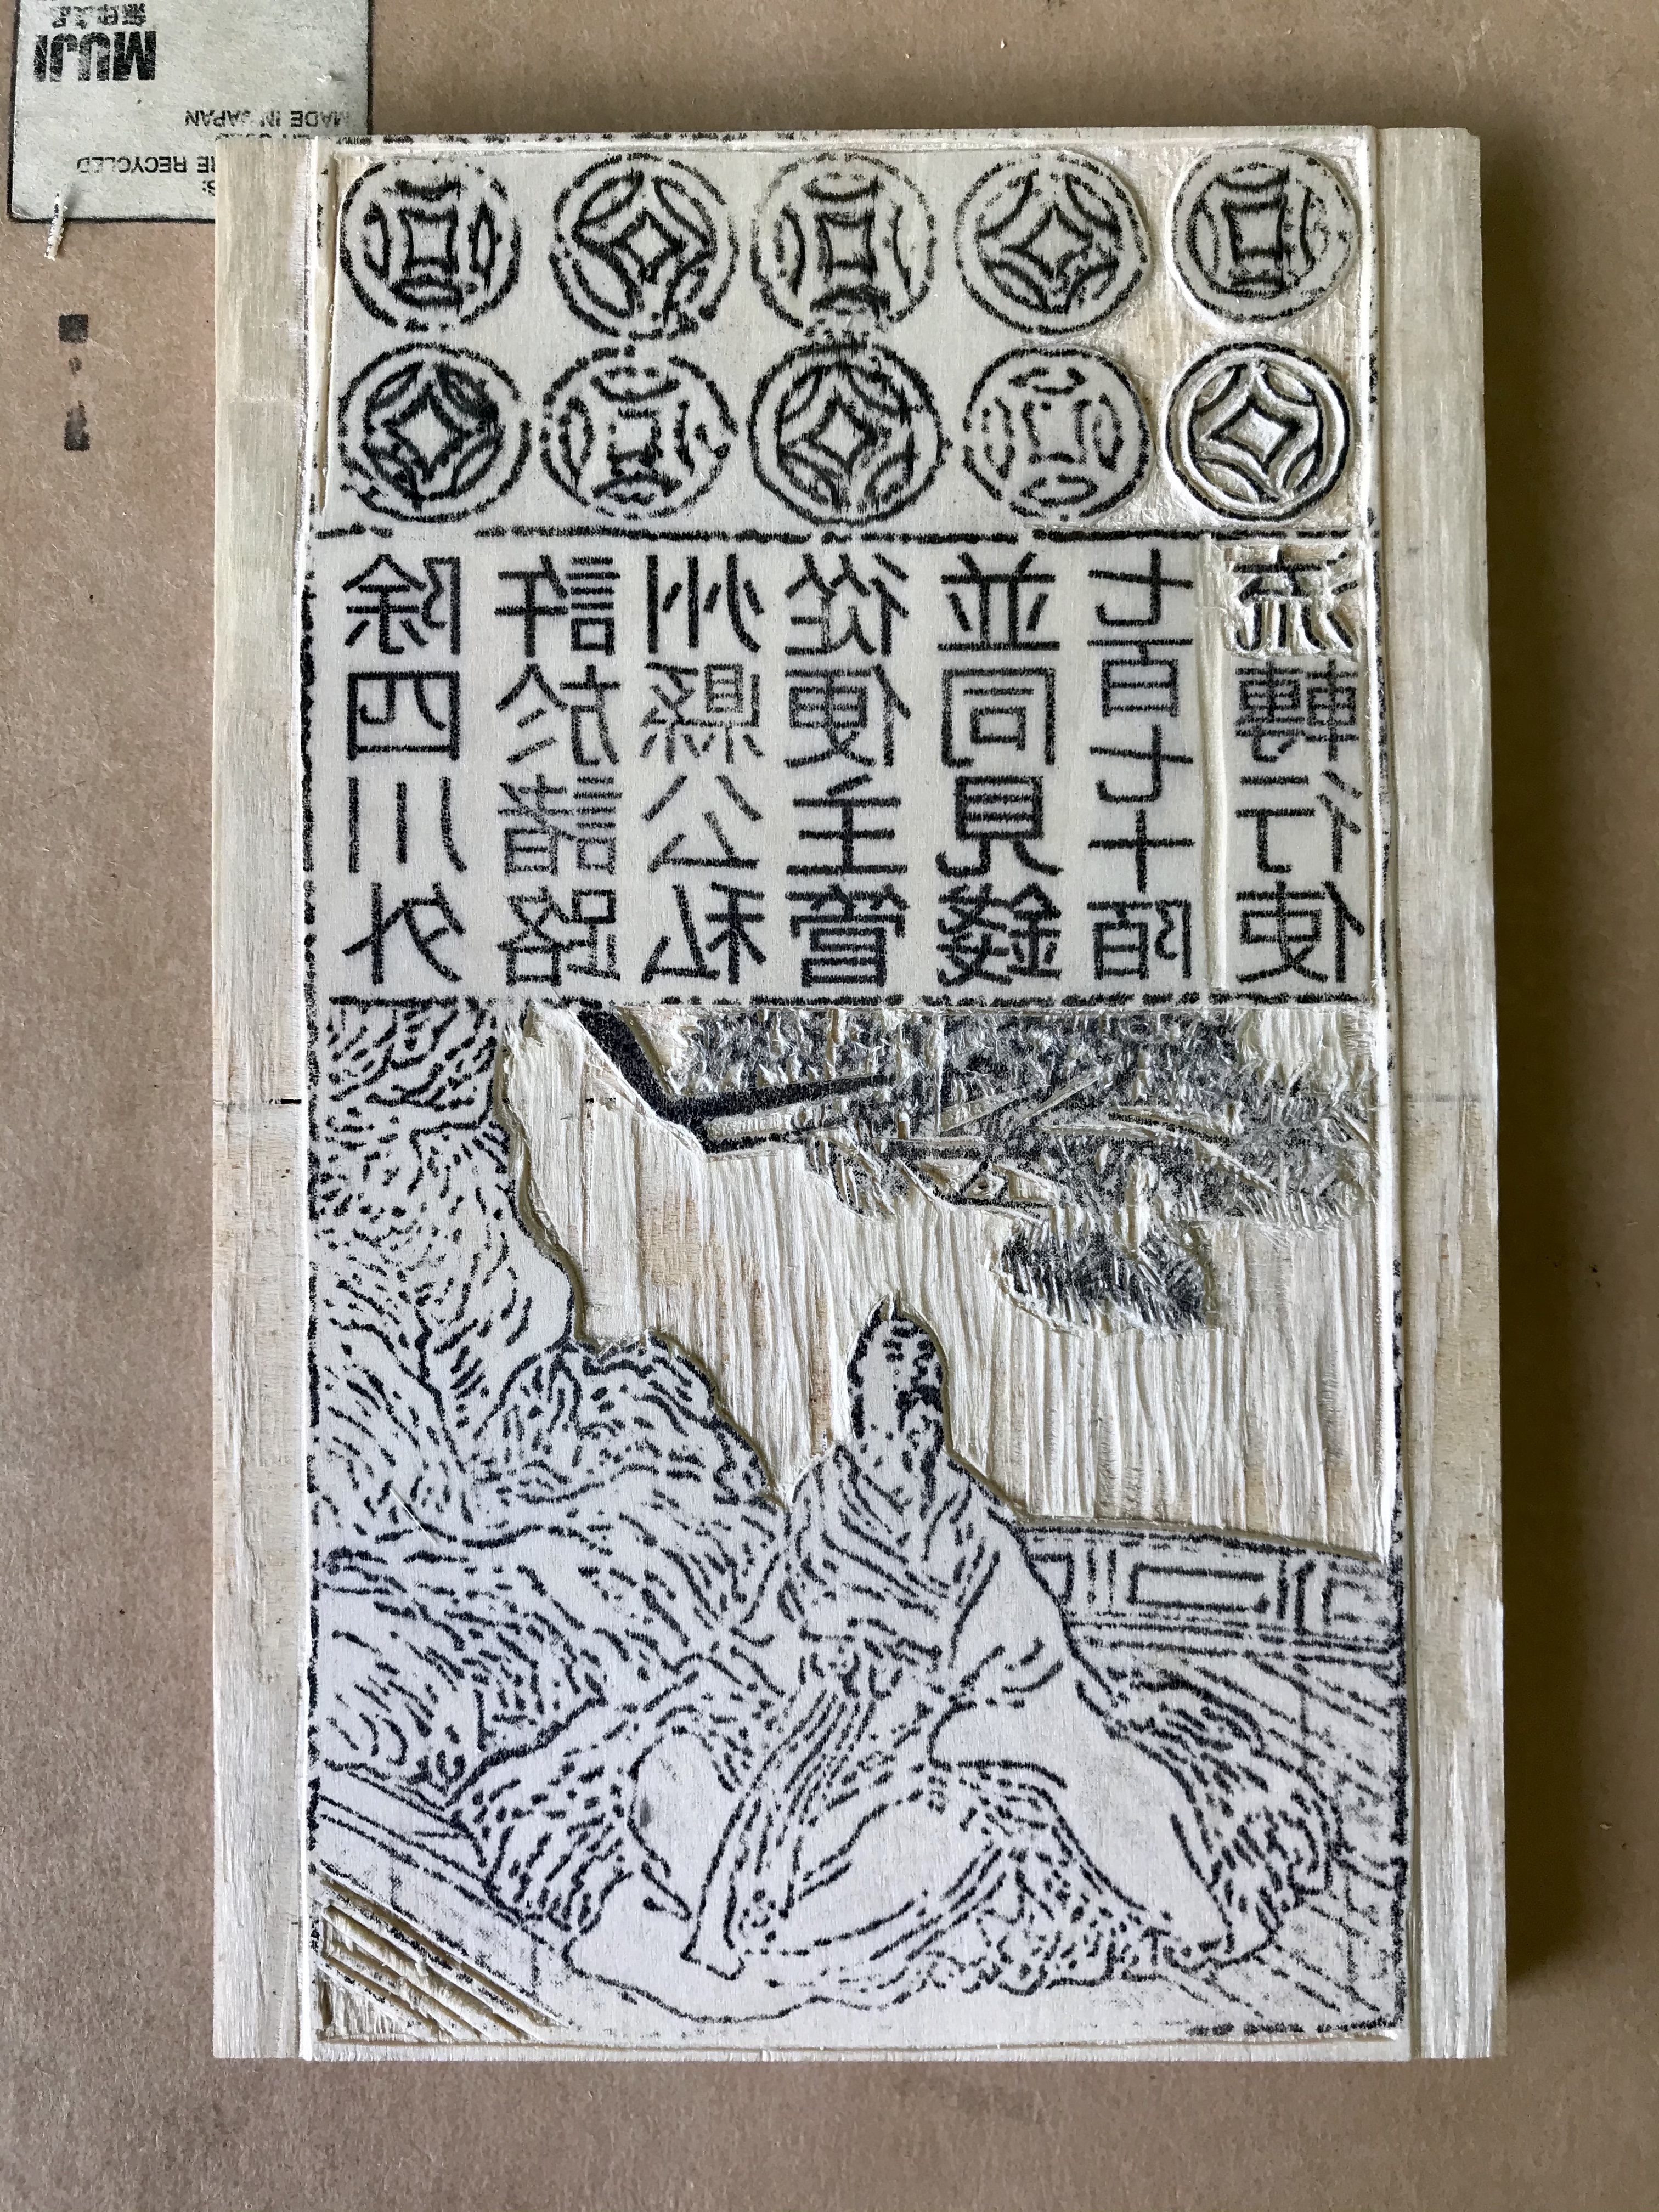 除四川外
許於諸路
州縣公私
從便主管
並同見錢
七百七十陌
流轉行使
RECYCLED
MADE IN JAPAN
MUJI
無印良品